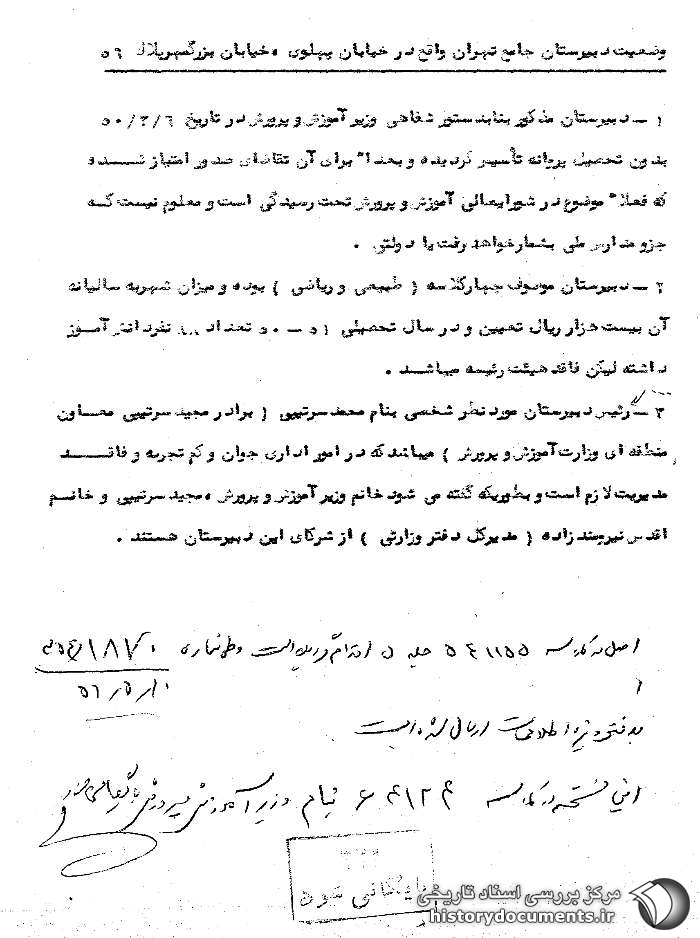 وضعیت دبیرستان جامع تهران واقع در خیابان پهلوی ، خیابان بزرگمهر پلاک ۵۶
۱ ــ دبیرستان مذکور بنا بدستور شفاهی وزیر آموزش و پرورش در تاریخ ۵۰/۳/۶
بدون تحصیل پروانه تأسیس گردیده و بعدا" برای آن تقاضای صدور امتیاز شده
که فعلا" موضوع در شورایعالی آموزش و پرورش تحت رسیدگی است و معلوم نیست که
جزو مدارس ملی بشمار خواهد رفت یا دولتی .
۲ ــ دبیرستان موصوف چهار کلاسه ( طبیعی و ریاضی ) بوده و میزان شهریه سالیانه
آن بیست هزار ریال تعیین و در سال تحصیلی ۵۱ ــ ۵۰ تعداد ۸۸ نفر دانش آموز
داشته لیکن فاقد هیئت رئیسه میباشد .
۳ ــ رئیس دبیرستان مورد نظر شخصی بنام محمد سرتیپی ( برادر مجید سرتیپی معاون
منطقه ای وزارت آموزش و پرورش ) میباشد که در امور اداری جوان و کم تجربه و فاقد
مدیریت لازم است و بطوریکه گفته می شود خانم وزیر آموزش و پرورش ، مجید سرتیپی و خانم
اقدس نیرومند زاده ( مدیرکل دفتر وزارتی ) از شرکای این دبیرستان هستند .
اصل در کلاسه ۵۴۱۱۵۵ جلد
۵۱/۵/۱۰
به دفتر ویژه اطلاعات ارسال شده است
این نسخه در کلاسه ۶۴۱۲۴ بنام وزیر آموزش و پرورش بایگانی شود
بایگانی شود
مرکز بررسی اسناد تاریخی
historydocuments.ir